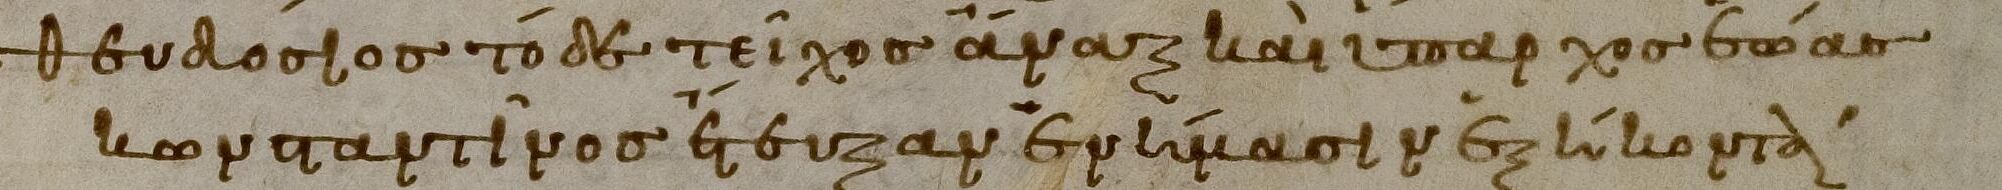 θευδόσιος τόδε τεῖχος ἄναξ καὶ ὕπαρχος ἑώας
κωνσταντῖνος ἔτευξαν ἐν ἤμασιν ἑξήκοντα